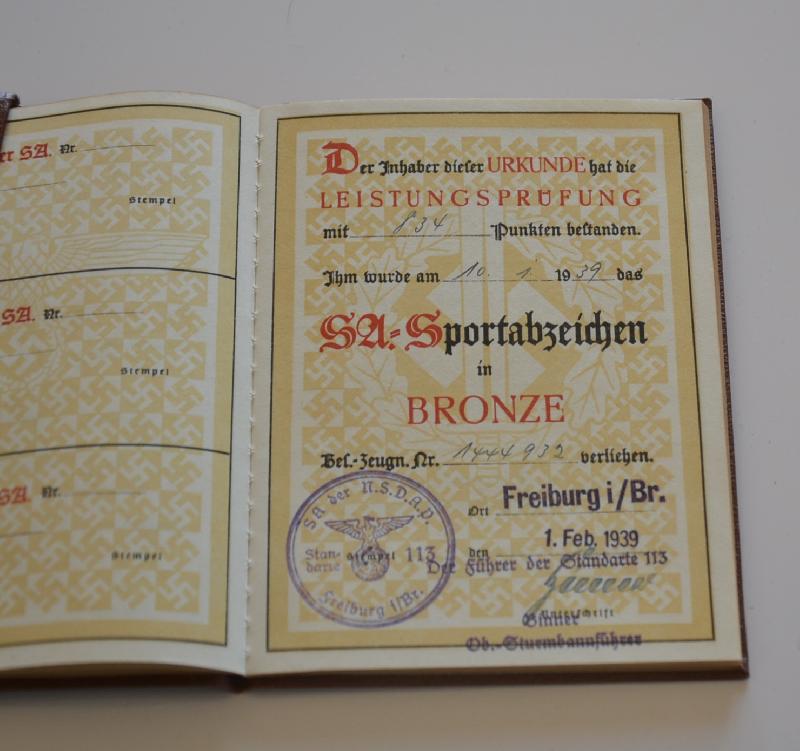 er SA. Nr.
Stempel
SA. Nr.
Stempel
SA. Nr.
Stempel
Der Inhaber dieser URKUNDE hat die
LEISTUNGSPRÜFUNG
mit 834 Punkten bestanden.
Ihm wurde am 10. 1. 1939 das
SA.-Sportabzeichen
in
BRONZE
Bes.-Zeugn. Nr. 1444932 verliehen.
Ort Freiburg i/Br.
den 1. Feb. 1939
Der Führer der Standarte 113
Unterschrift
Binner
Ob.-Sturmbannführer
SA der N.S.D.A.P.
Standarte Stempel 113
Freiburg i/Br.